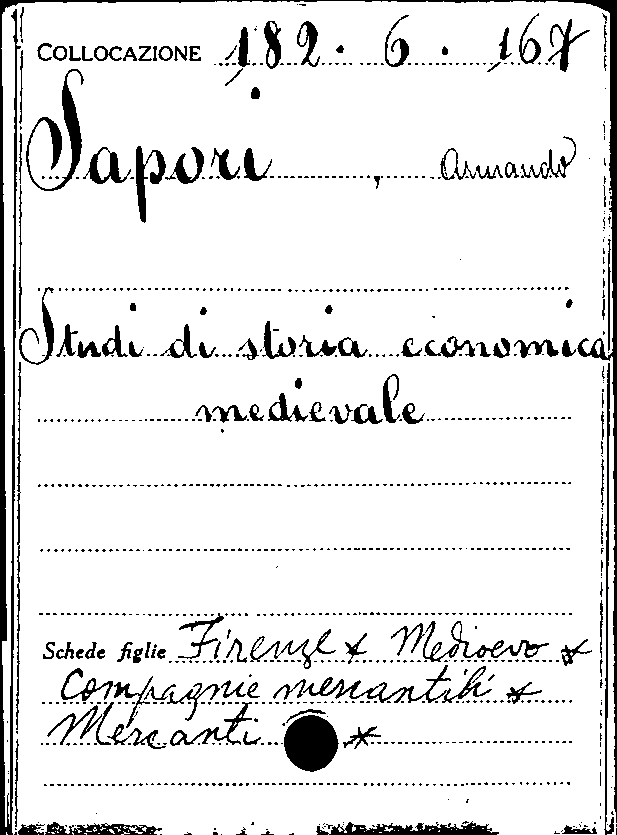 COLLOCAZIONE 182 . 6 . 167
Sapori , Armando
Studi di storia economica
medievale
Schede figlie Firenze * Medioevo *
Compagnie mercantili *
Mercanti *